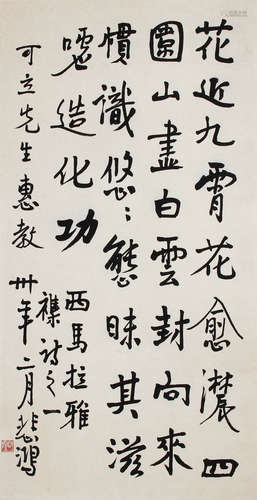 花近九霄花愈濃四
圍山盡白雲封向來
慣識悠〻態昧其滋
噓造化功
西馬拉雅
襍詩之一
可立先生惠教
卅年二月悲鴻